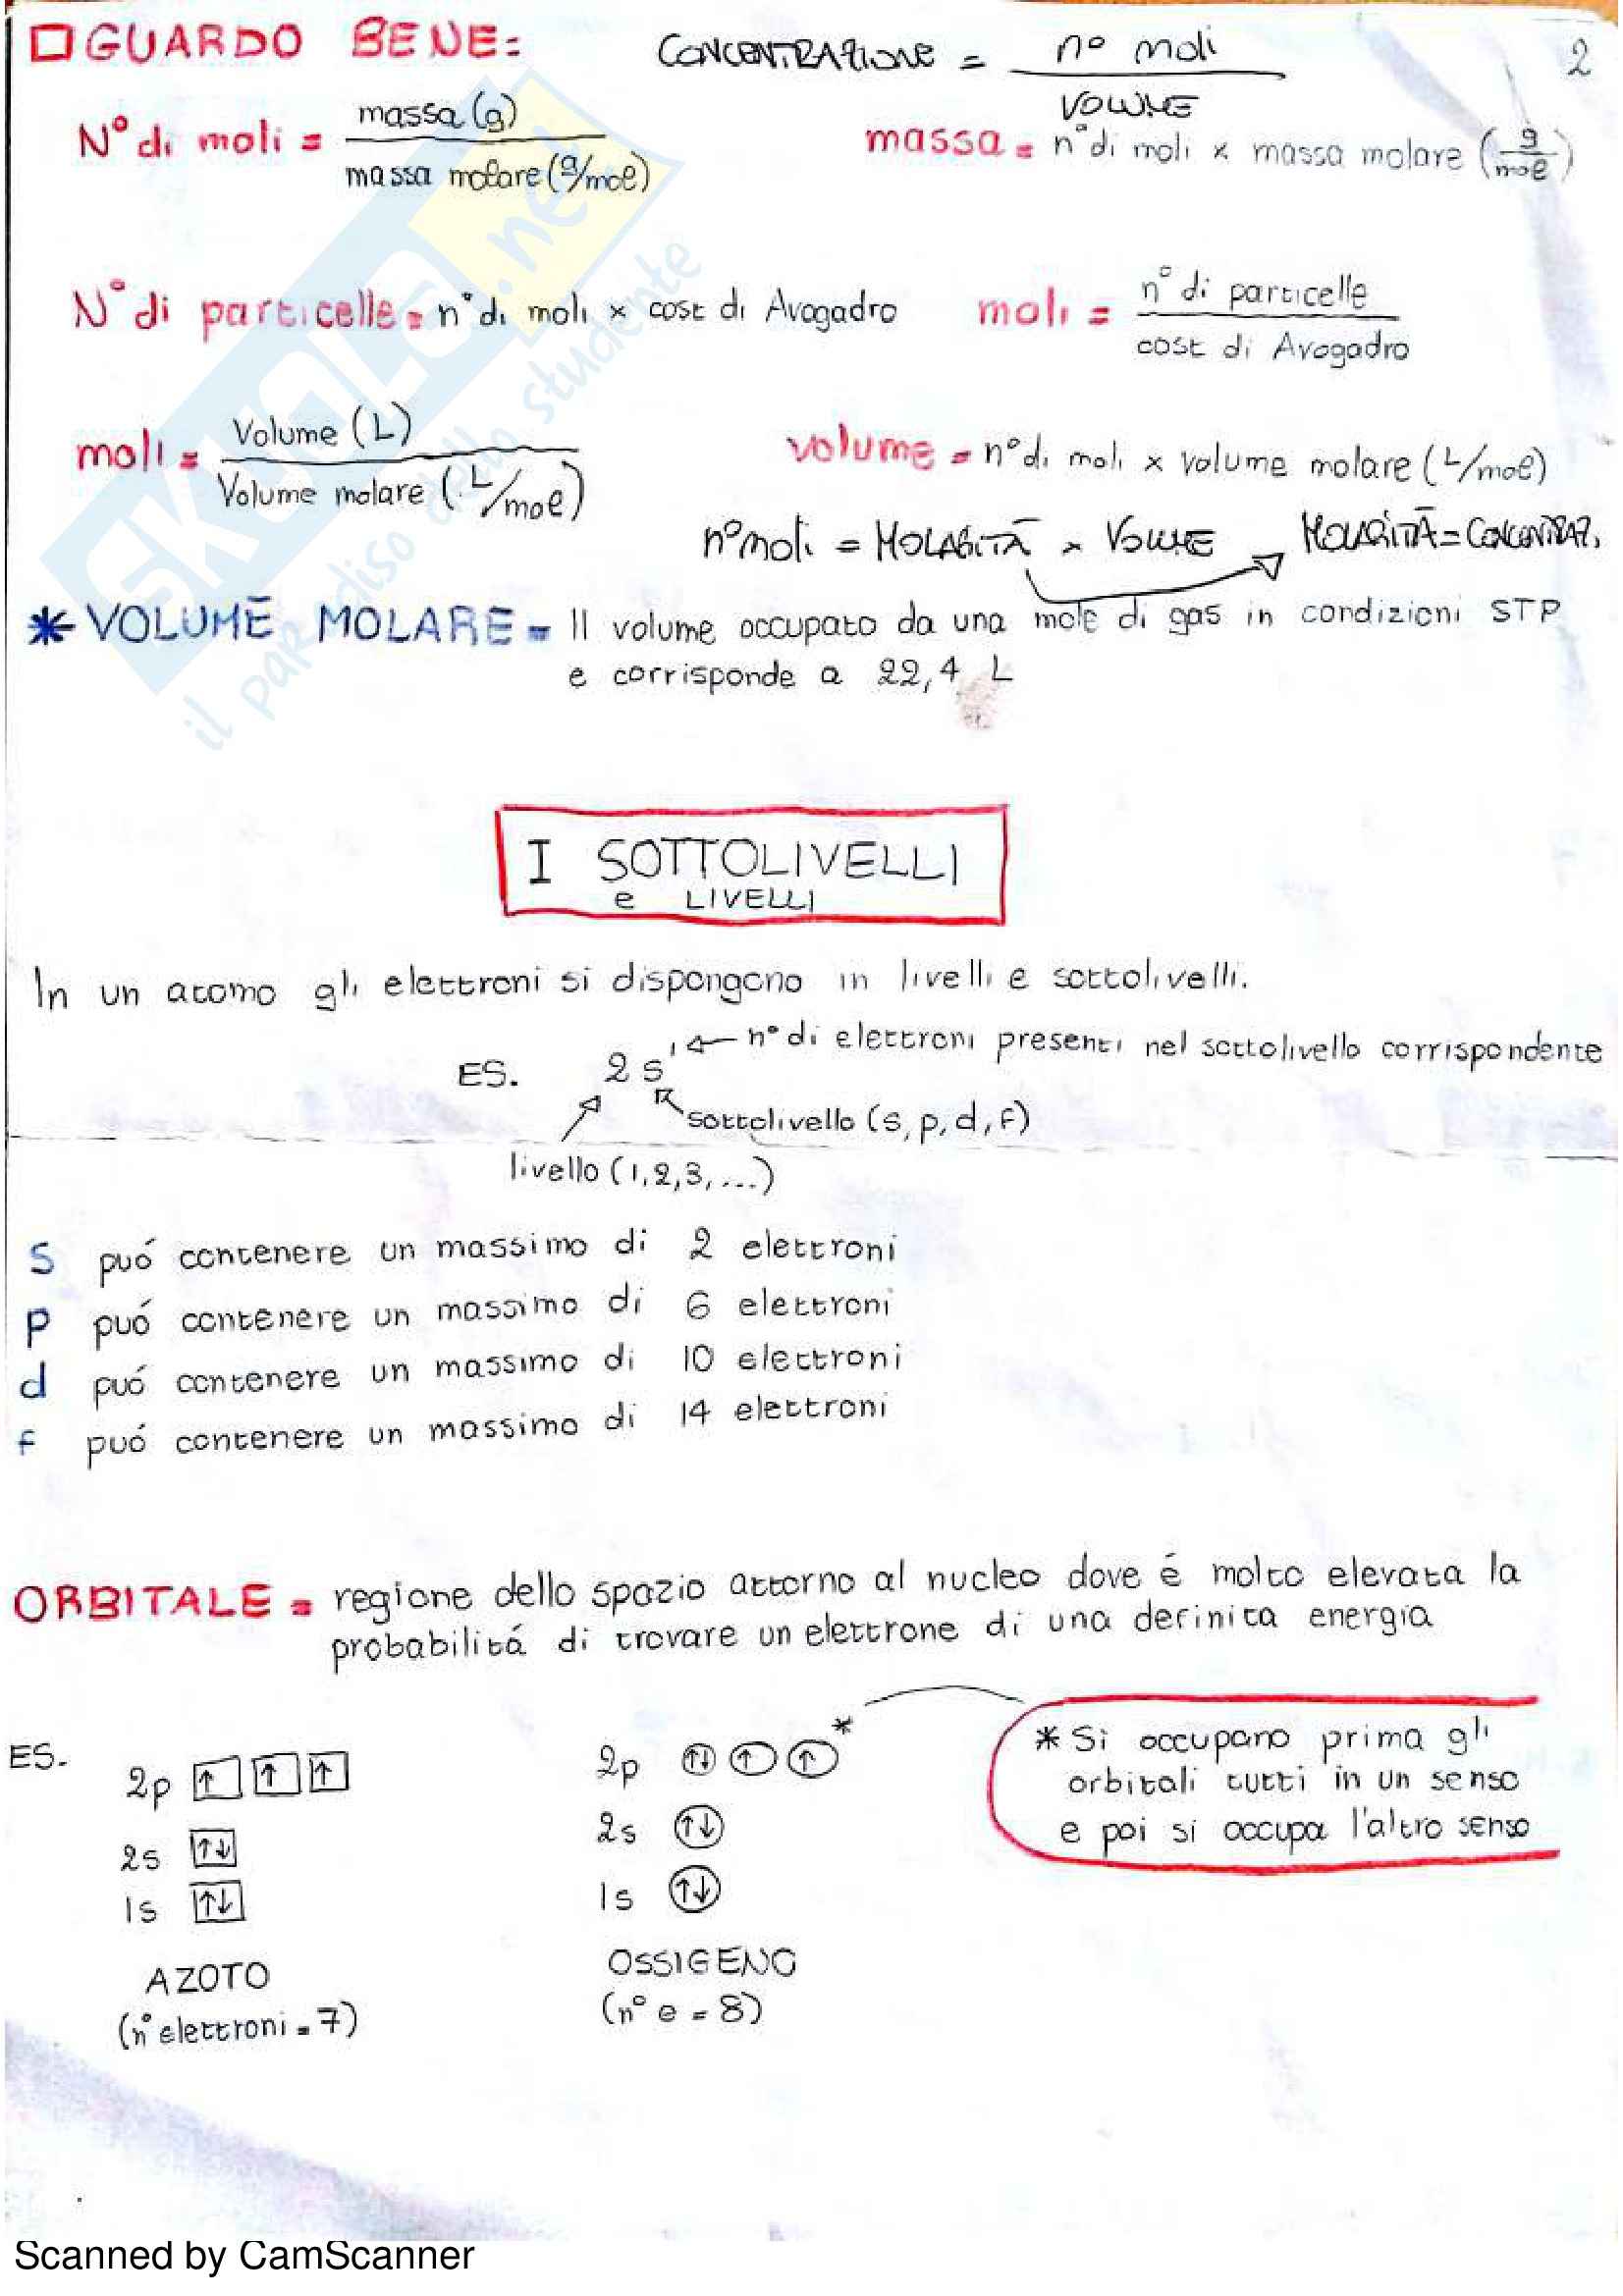 GUARDO BENE:
CONCENTRAZIONE = n° moli / VOLUME
2
N° di moli = massa (g) / massa molare (g/mol)
massa = n° di moli x massa molare (g/mol)
N° di particelle = n° di moli x cost di Avogadro
moli = n° di particelle / cost di Avogadro
moli = Volume (L) / Volume molare (L/mol)
volume = n° di moli x volume molare (L/mol)
n° moli = MOLARITÀ x VOLUME
MOLARITÀ = CONCENTRAZ.
* VOLUME MOLARE = Il volume occupato da una mole di gas in condizioni STP
e corrisponde a 22,4 L
I SOTTOLIVELLI
e LIVELLI
In un atomo gli elettroni si dispongono in livelli e sottolivelli.
ES. 2s¹ ← n° di elettroni presenti nel sottolivello corrispondente
sottolivello (s, p, d, f)
livello (1, 2, 3, ...)
S puó contenere un massimo di 2 elettroni
P puó contenere un massimo di 6 elettroni
d puó contenere un massimo di 10 elettroni
f puó contenere un massimo di 14 elettroni
ORBITALE = regione dello spazio attorno al nucleo dove é molto elevata la
probabilitá di trovare un elettrone di una definita energia
ES.
2p ↑ ↑ ↑
2s ↑↓
1s ↑↓
AZOTO
(n° elettroni = 7)
2p ↑↓ ↑ ↑ *
2s ↑↓
1s ↑↓
OSSIGENO
(n° e = 8)
* Si occupano prima gli
orbitali tutti in un senso
e poi si occupa l'altro senso
SKUOLA.net
il paradiso dello studente
Scanned by CamScanner